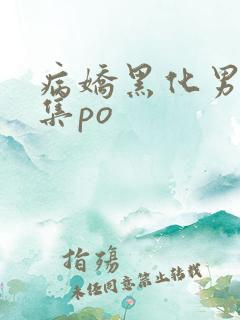 病嬌黑化男
集po
指殤
未经同意禁止转载